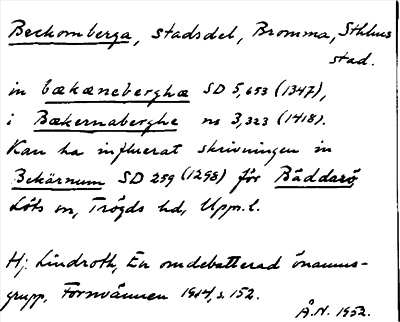 Beckomberga, stadsdel, Bromma, Sthlms
stad.
in bækæneberghæ SD 5,653 (1347),
i Bækernaberghe ns 3,323 (1418).
Kan ha influerat skrivningen in
Bekärnum SD 259 (1298) för Båddarö,
Löts sn, Trögds hd, Uppl.
Hj. Lindroth, En omdebatterad önamns-
grupp, Fornvännen 1914, s. 152.
Å.N. 1952.